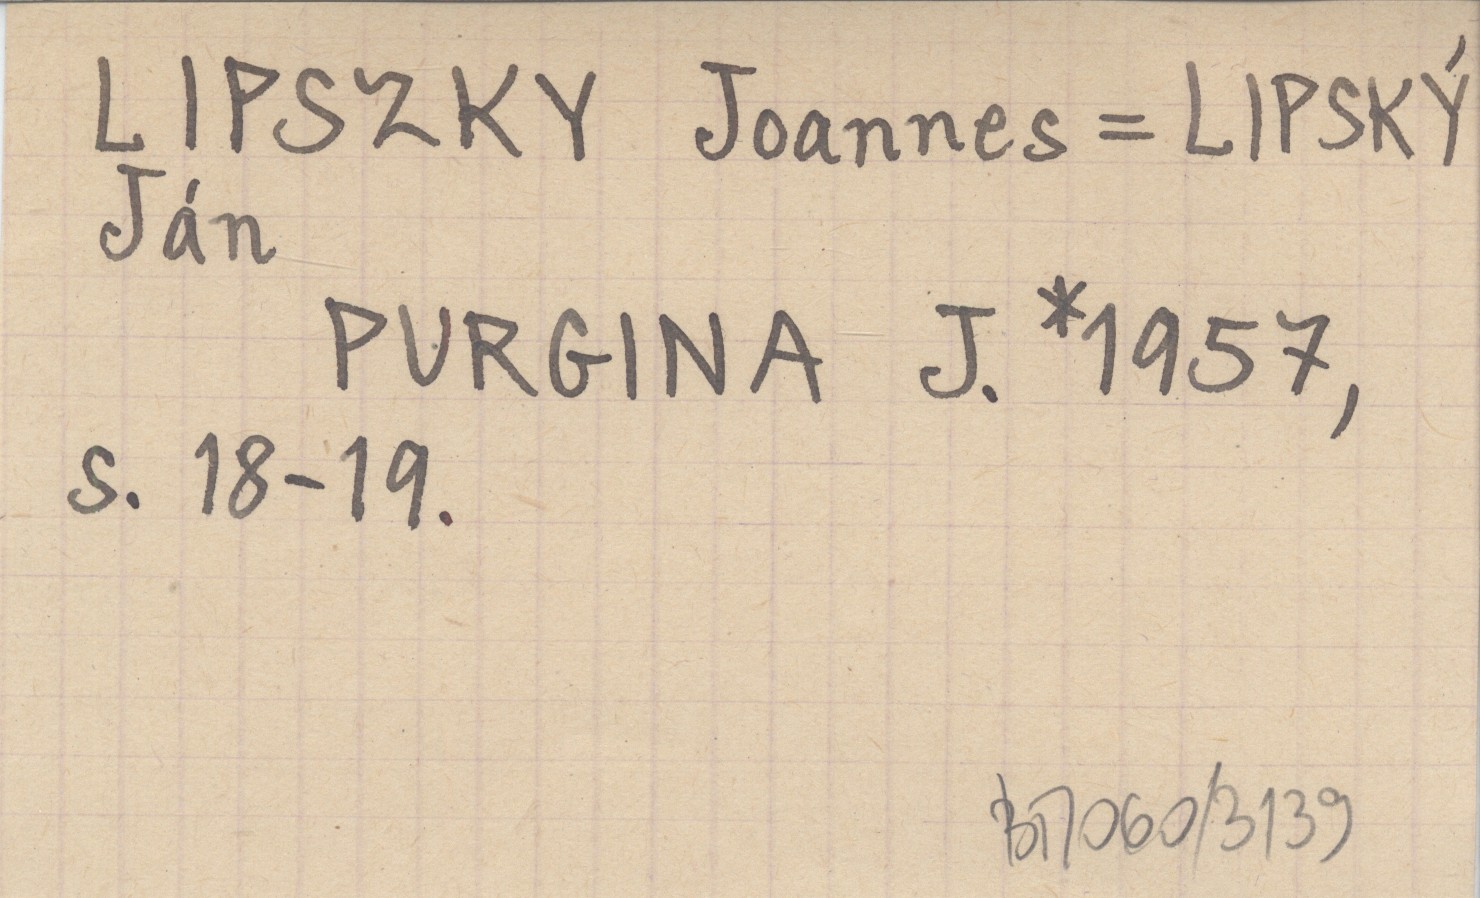 LIPSZKY Joannes = LIPSKÝ
Ján
PURGINA J. *1957,
s. 18-19.
060/3139